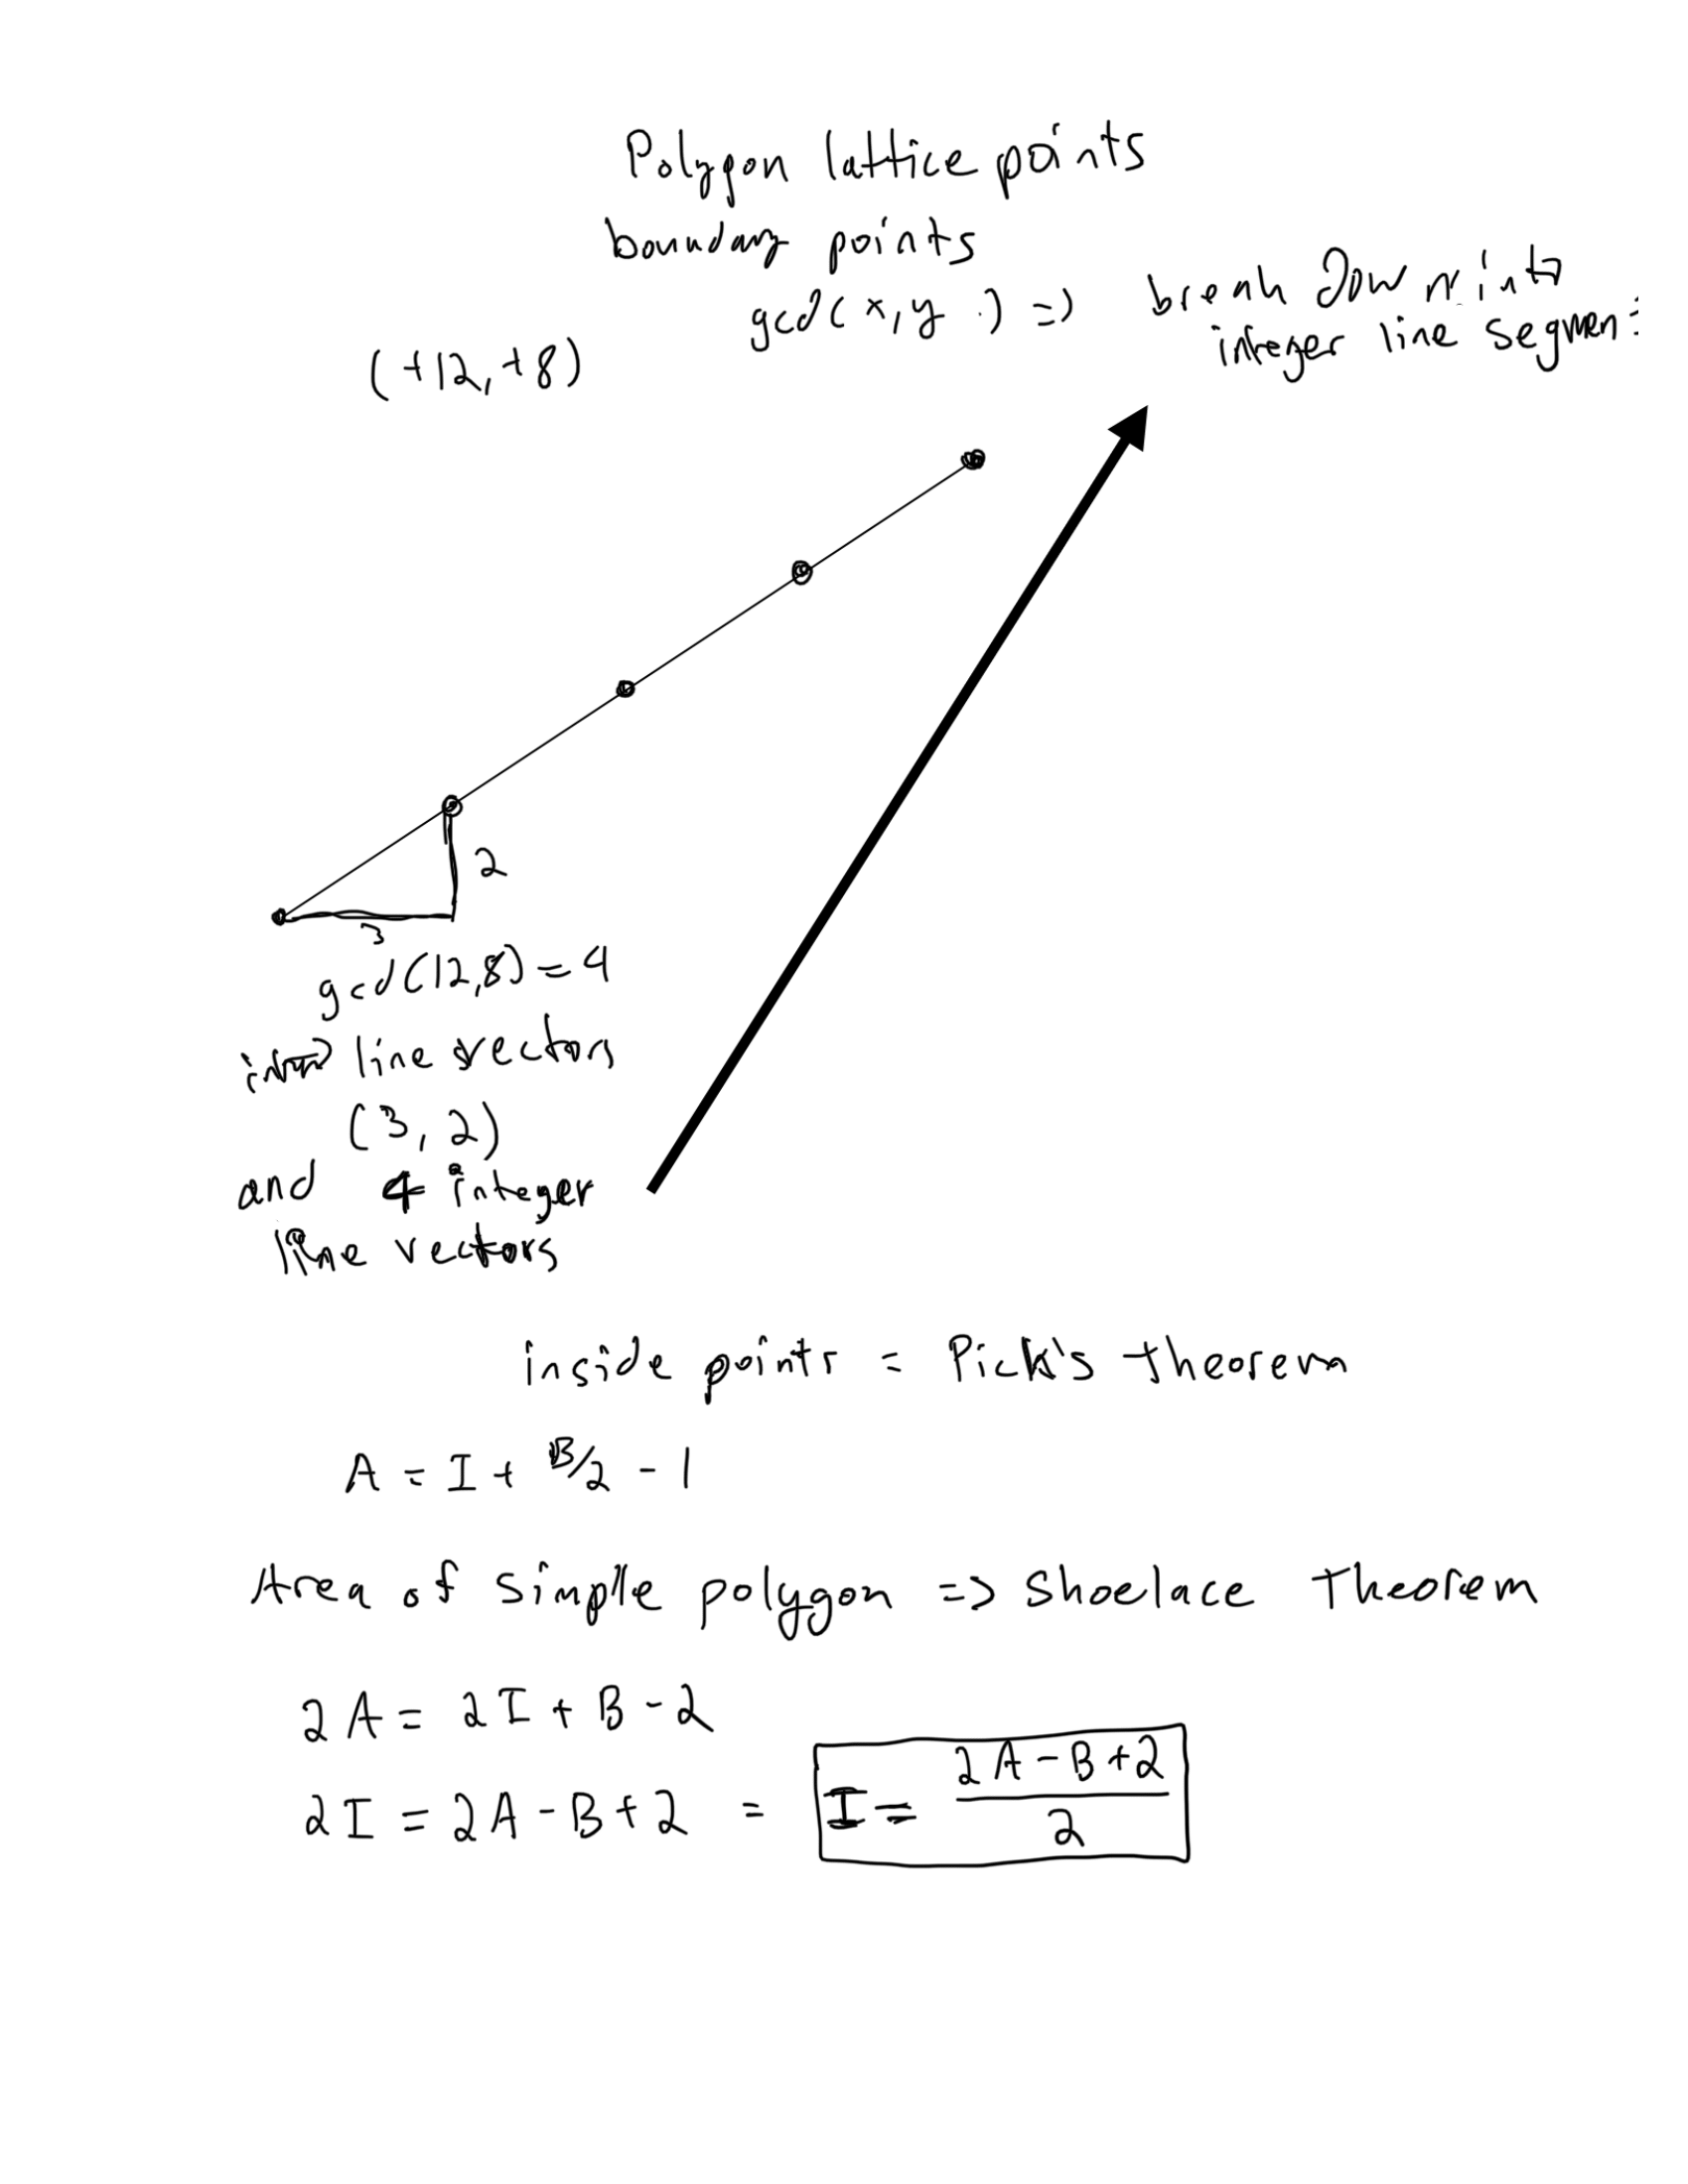 Polygon lattice points
boundary points
gcd(x,y) => break down into
integer line segmen
(+12,+8)
2
3
gcd(12,8)=4
into line vectors
(3,2)
and 4 integer
line vectors
inside points = Pick's theorem
A = I + B/2 - 1
Area of simple polygon => shoelace Theorem
2A = 2I + B - 2
2I = 2A - B + 2 = I = (2A - B + 2)/2